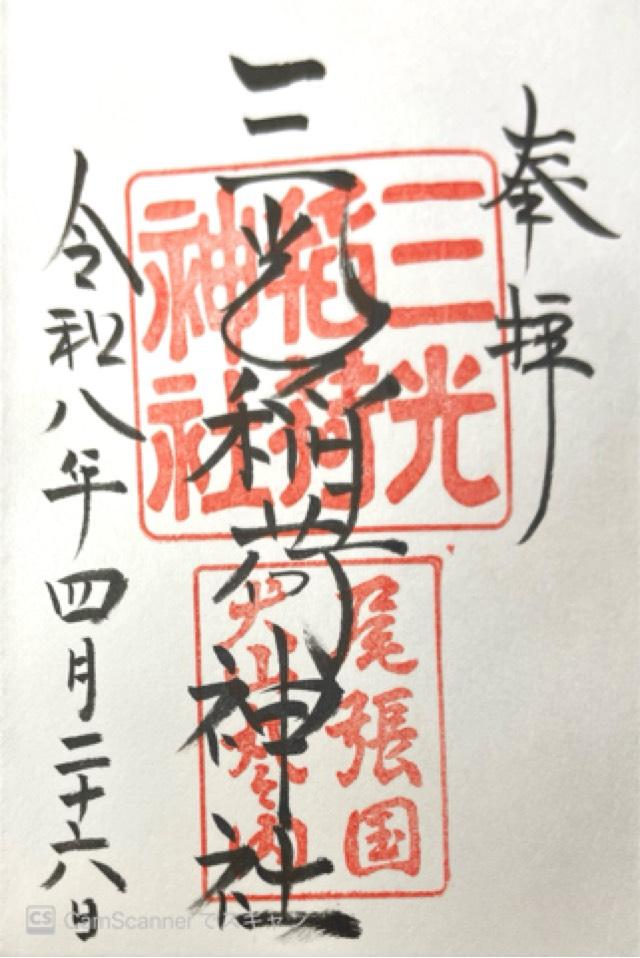 奉拝
三光稲荷神社
三光
稲荷
神社
尾張国
犬山
内
令和八年四月二十六日
CS CamScanner でスキャン